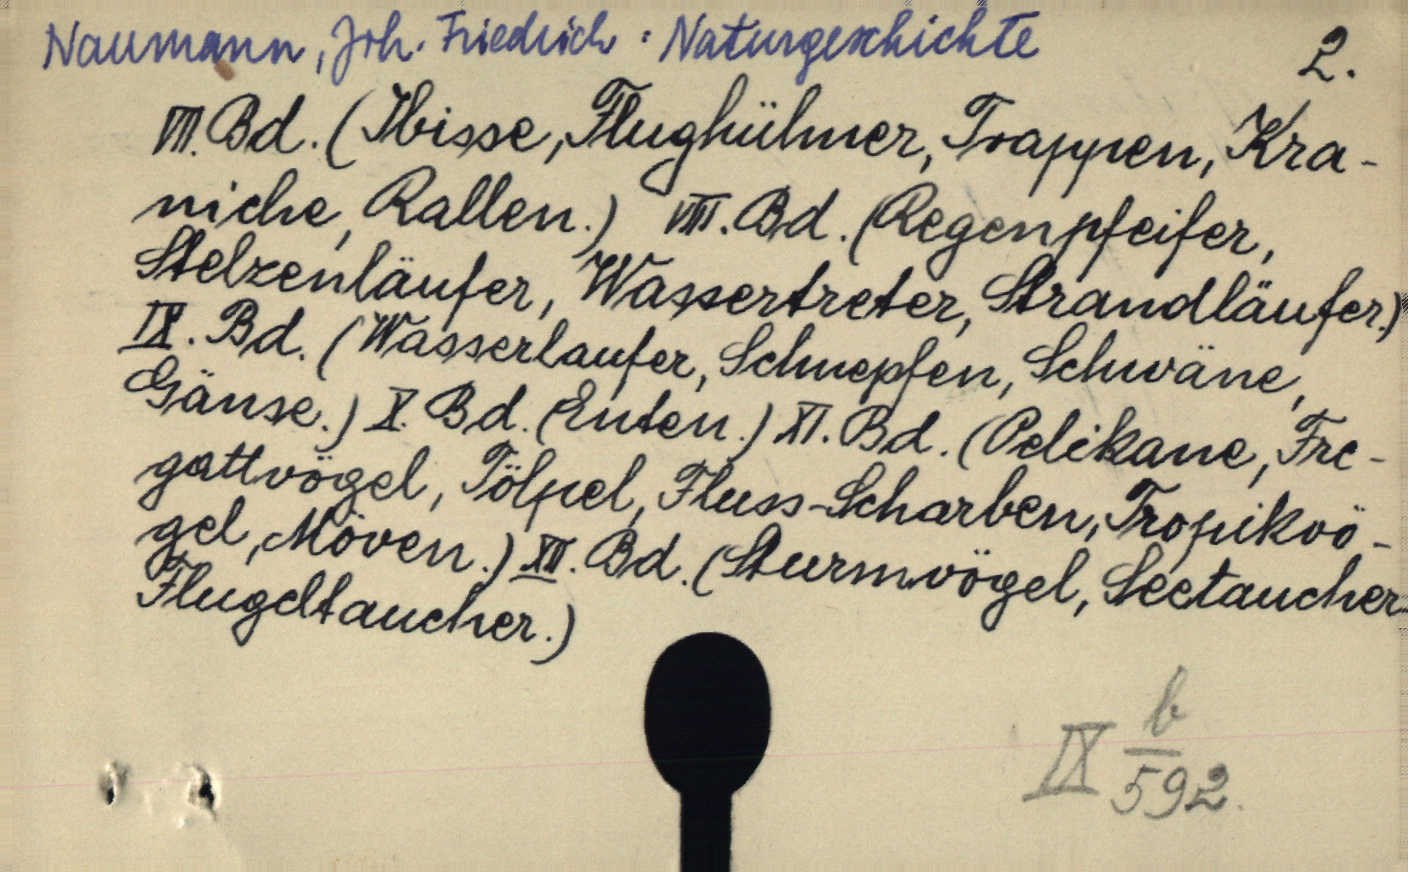 Naumann, Joh. Friedrich: Naturgeschichte 2.
VII. Bd. (Ibisse, Flughühner, Trappen, Kra-
niche, Rallen.) VIII. Bd. (Regenpfeifer,
Stelzenläufer, Wassertreter, Strandläufer.)
IX. Bd. (Wasserlaufer, Schnepfen, Schwäne,
Gänse.) X. Bd. (Enten.) XI. Bd. (Pelikane, Fre-
gattvögel, Tölpel, Fluss-Scharben, Tropikvö-
gel, Möven.) XII. Bd. (Sturmvögel, Seetaucher
Flugeltaucher.)
IX b
592.